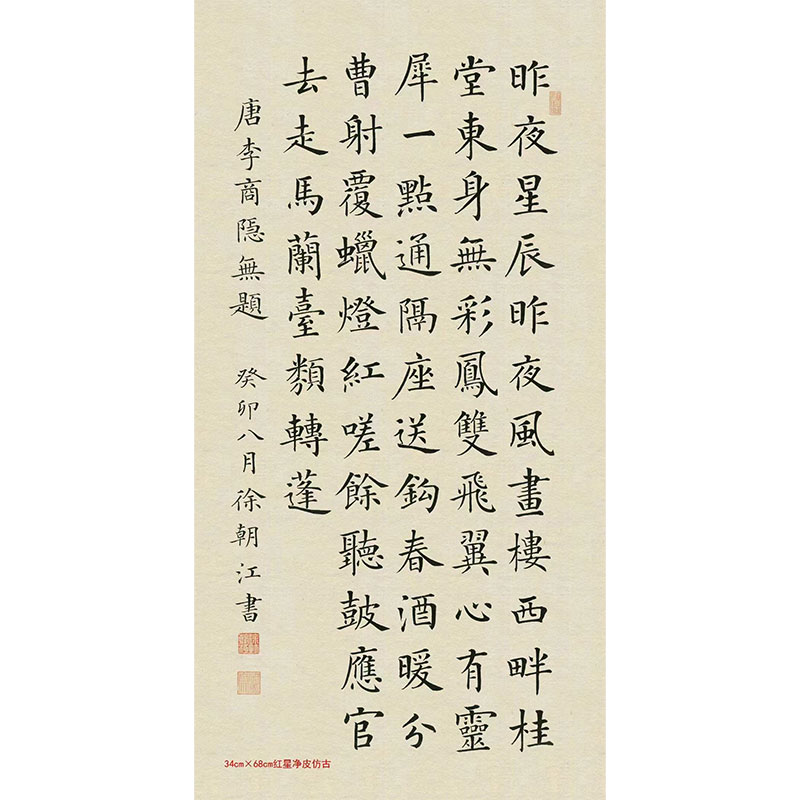 昨夜星辰昨夜風畫樓西畔桂
堂東身無彩鳳雙飛翼心有靈
犀一點通隔座送鈎春酒暖分
曹射覆蠟燈紅嗟餘聽皷應官
去走馬蘭臺類轉蓬
唐李商隐無題 癸卯八月徐朝江書
34cm×68cm红星净皮仿古